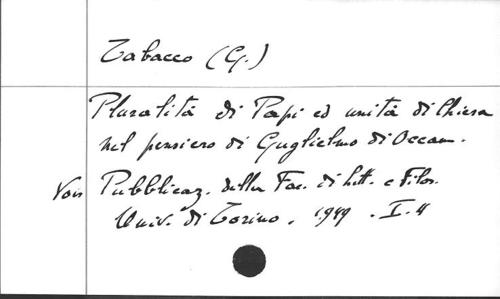 Tabacco (G.)
Pluralità di Papi ed unità di Chiesa
nel pensiero di Guglielmo di Occam.
Voir Pubblicaz. della Fac. di Lett. e Filos.
Univ. di Torino. 1949. I. 4